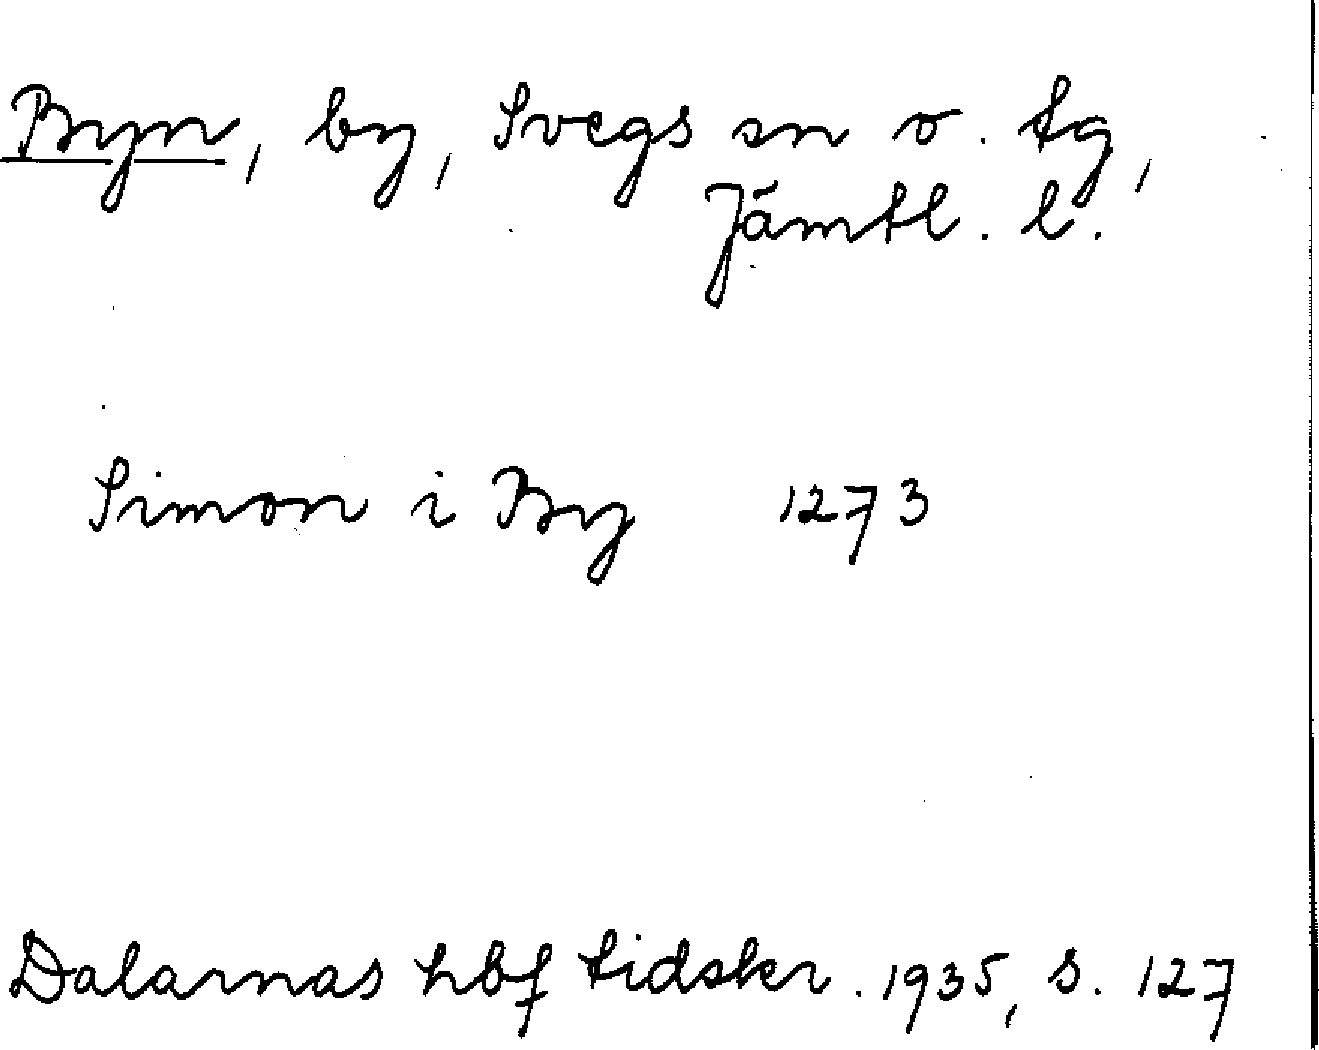 Byn, by, Svegs sn o. tg,
Jämtl. l.
Simon i By 1273
Dalarnas hbf tidskr. 1935, s. 127